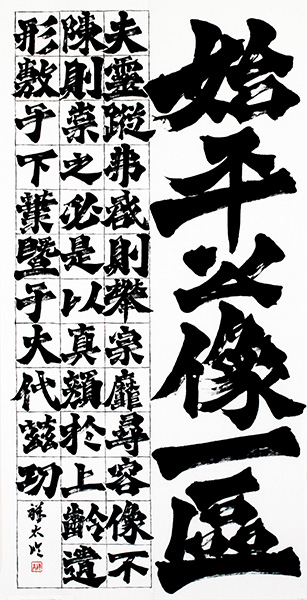 始平公像一區
夫靈蹤弗啓則攀宗靡尋容像不
陳則崇之必是以真顏於上齡遺
形敷于下葉曁于大代茲功
祥太